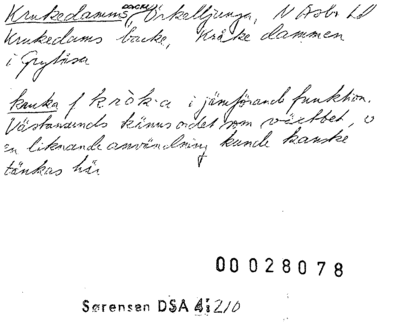 Krukedamms backe, Örkelljunga, N Åsbo hd
Krukedams backe, Kråke dammen
i Grytåsa
kruka f krök·a i jämförande funktion.
Västansunds känns ordet som växtbet, o
en liknande användning kunde kanske
tänkas här
00028078
Sørensen DSA 4:210